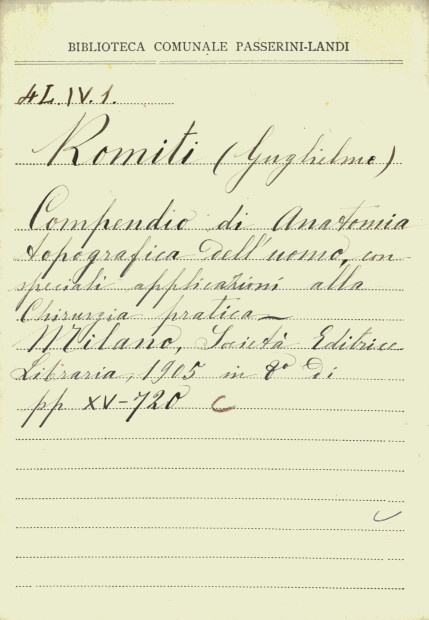 BIBLIOTECA COMUNALE PASSERINI-LANDI
4L IV.1.
Romiti (Guglielmo)
Compendio di Anatomia
topografica dell'uomo, con
speciali applicazioni alla
Chirurgia pratica—
Milano, Società Editrice
Libraria, 1905 in 8° di
pp XV-720 C